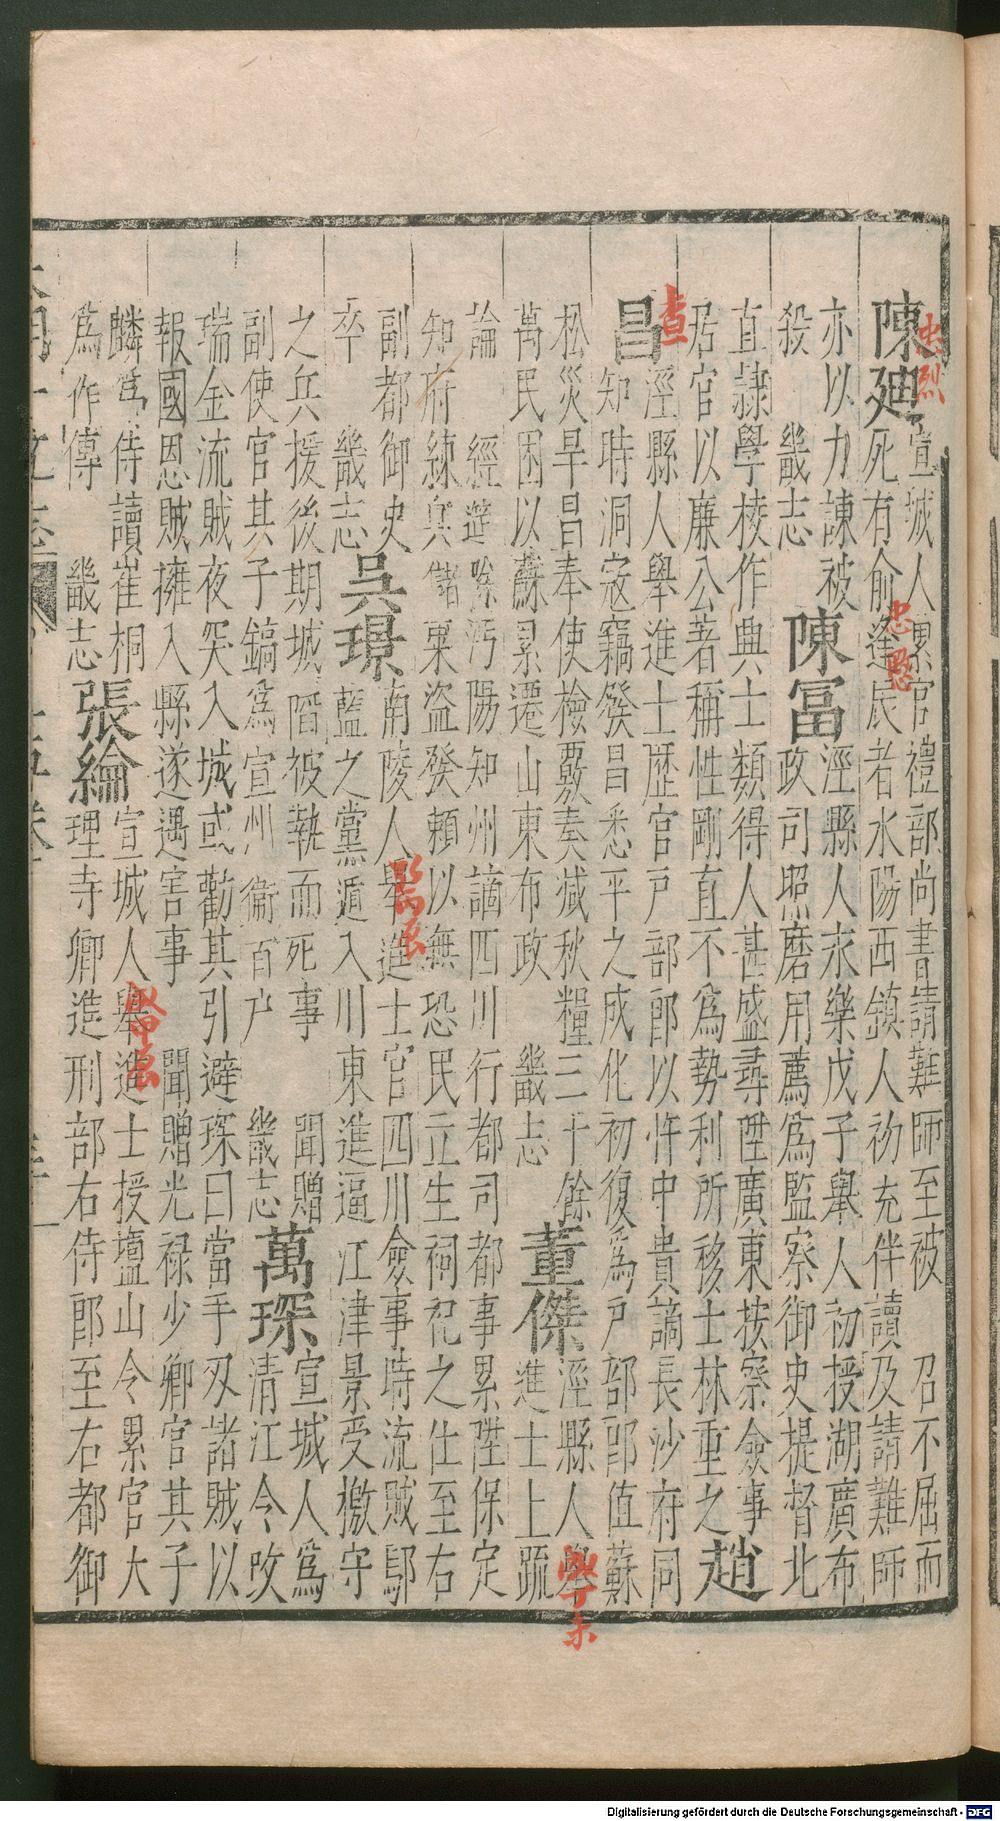 陳廸
宣城人累官禮部尚書請難師至被 召不屈而
死有俞逢辰者水陽西鎮人初充伴讀及請難師
亦以力諫被
殺 畿志
陳冨
涇縣人永樂戊子舉人初授湖廣布
政司照磨用薦為監察御史提督北
直隷學校作典士類得人甚盛尋陞廣東按察僉事
居官以廉公著稱性剛直不為勢利所移士林重之
趙
昌
涇縣人舉進士歷官戶部郎以忤中貴謫長沙府同
知時洞寇竊發昌悉平之成化初復為戶部郎值蘇
松災旱昌奉使檢覈奏減秋糧三十餘
萬民困以蘇累遷山東布政 畿志
董傑
涇縣人舉
進士上疏
論 經筵除沔陽知州謫四川行都司都事累陞保定
知府練兵儲粟盜發頼以無恐民立生祠祀之仕至右
副都御史
卒 畿志
吳璟
南陵人舉進士官四川僉事時流賊鄢
藍之黨遁入川東進逼江津景受檄守
之兵援後期城陷被執而死事 聞贈
副使官其子鎬為宣州衛百户 畿志
萬琛
宣城人為
清江令攻
瑞金流賊夜突入城或勸其引避琛曰當手刃諸賊以
報國恩賊擁入縣遂遇害事 聞贈光祿少卿官其子
麟為侍讀崔桐
為作傳 畿志
張綸
宣城人舉進士授壇山令累官大
理寺卿進刑部右侍郎至右都御
忠烈
忠愍
查
Digitalisierung gefördert durch die Deutsche Forschungsgemeinschaft - DFG